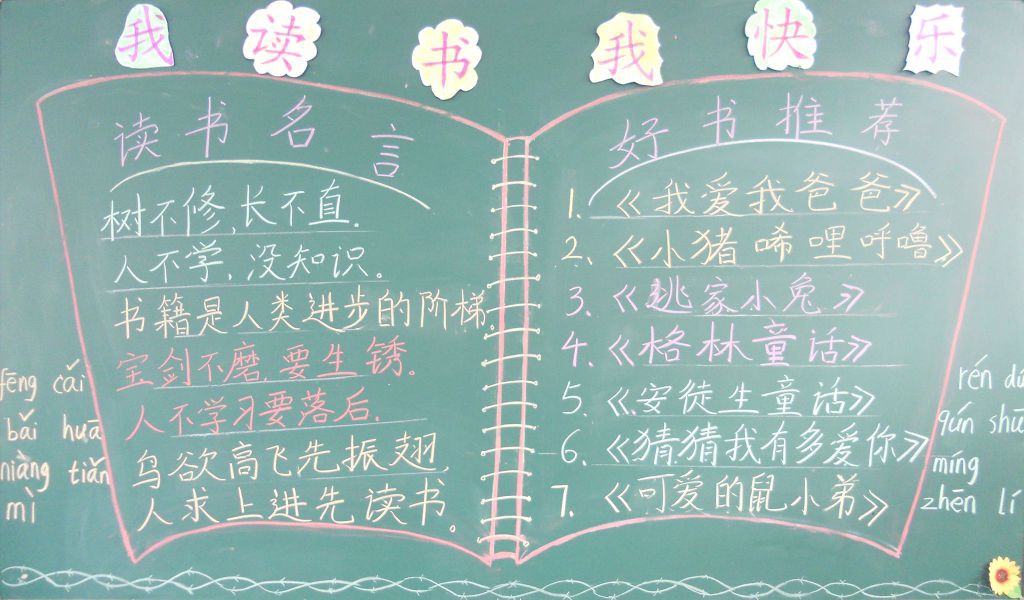 我读书我快乐
读书名言
树不修,长不直.
人不学,没知识。
书籍是人类进步的阶梯。
宝剑不磨,要生锈。
人不学习要落后.
鸟欲高飞先振翅,
人求上进先读书。
好书推荐
1.《我爱我爸爸》
2.《小猪唏哩呼噜》
3.《逃家小兔》
4.《格林童话》
5.《安徒生童话》
6.《猜猜我有多爱你》
7.《可爱的鼠小弟》
fēng cǎi
bǎi huā
niàng tián
mì
rén dú
qún shū
míng
zhēn lí